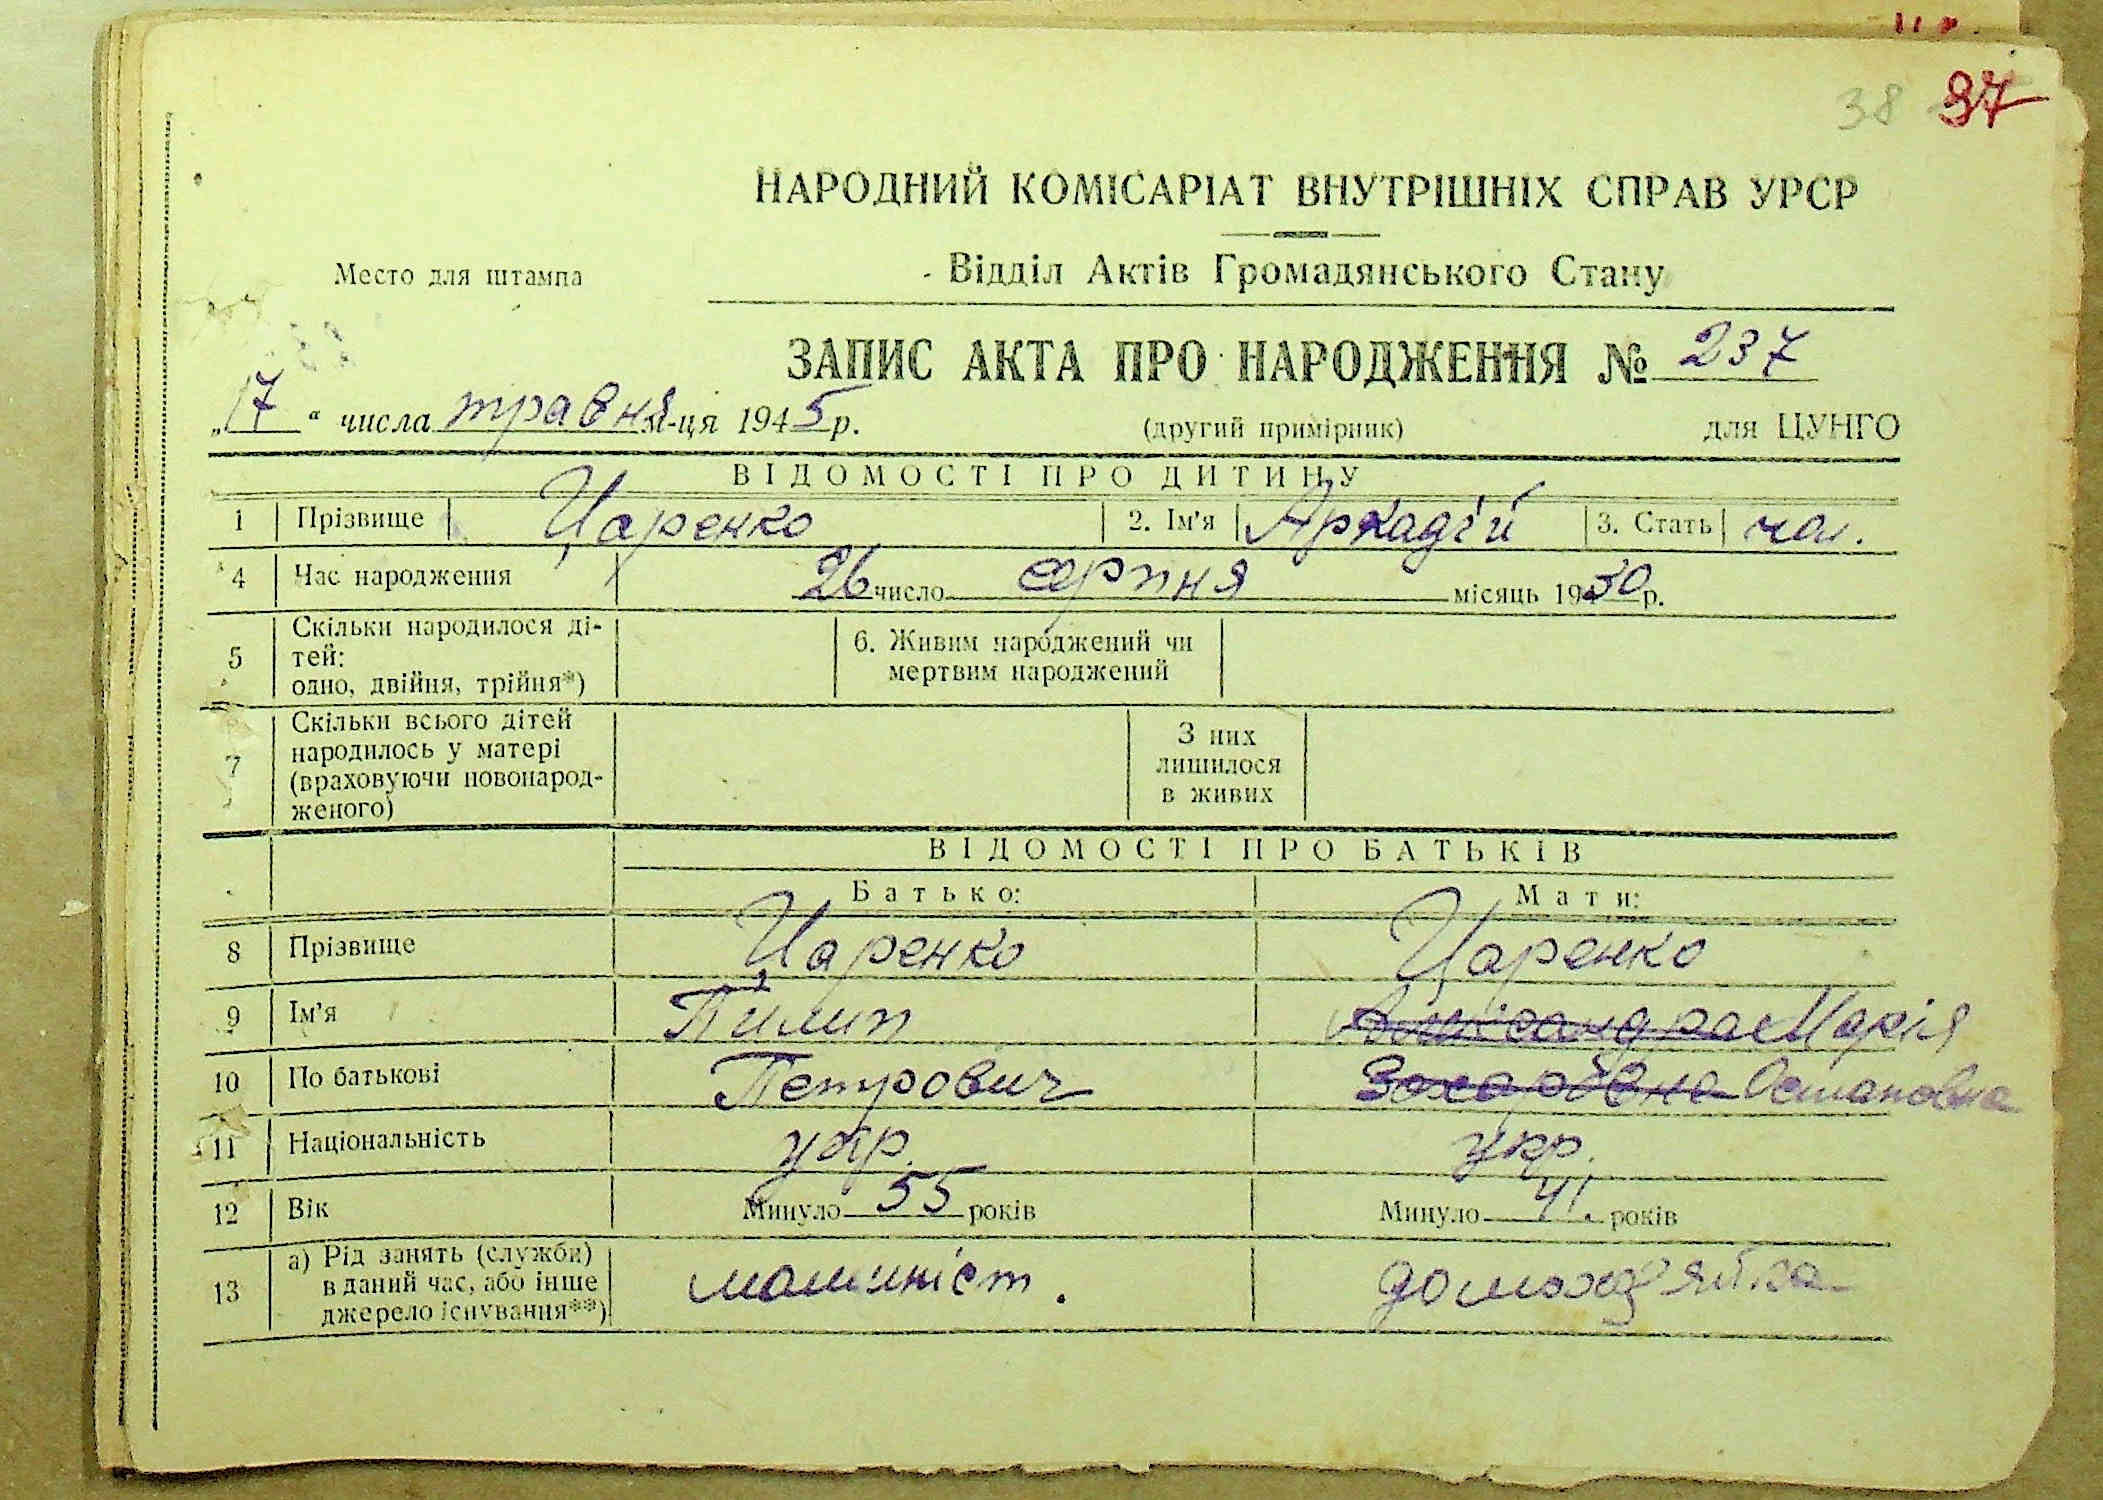 38 37
НАРОДНИЙ КОМІСАРІАТ ВНУТРІШНІХ СПРАВ УРСР
Место для штампа
Відділ Актів Громадянського Стану
ЗАПИС АКТА ПРО НАРОДЖЕННЯ № 237
„17“ числа травня м-ця 1945 р.
(другий примірник) для ЦУНГО
ВІДОМОСТІ ПРО ДИТИНУ
1 Прізвище Царенко 2. Ім'я Аркадій 3. Стать чол.
4 Час народження 26 число серпня місяць 1930 р.
5 Скільки народилося ді-
тей:
одно, двійня, трійня*)
6. Живим народжений чи
мертвим народжений
7 Скільки всього дітей
народилось у матері
(враховуючи новонарод-
женого)
З них
лишилося
в живих
ВІДОМОСТІ ПРО БАТЬКІВ
Батько: Мати:
8 Прізвище Царенко Царенко
9 Ім'я Пилип Олександра Марія
10 По батькові Петрович Захаровна Остаповна
11 Національність укр. укр.
12 Вік Минуло 55 років Минуло 41. років
13 а) Рід занять (служби)
в даний час, або інше
джерело існування**)
машиніст. домохазяйка